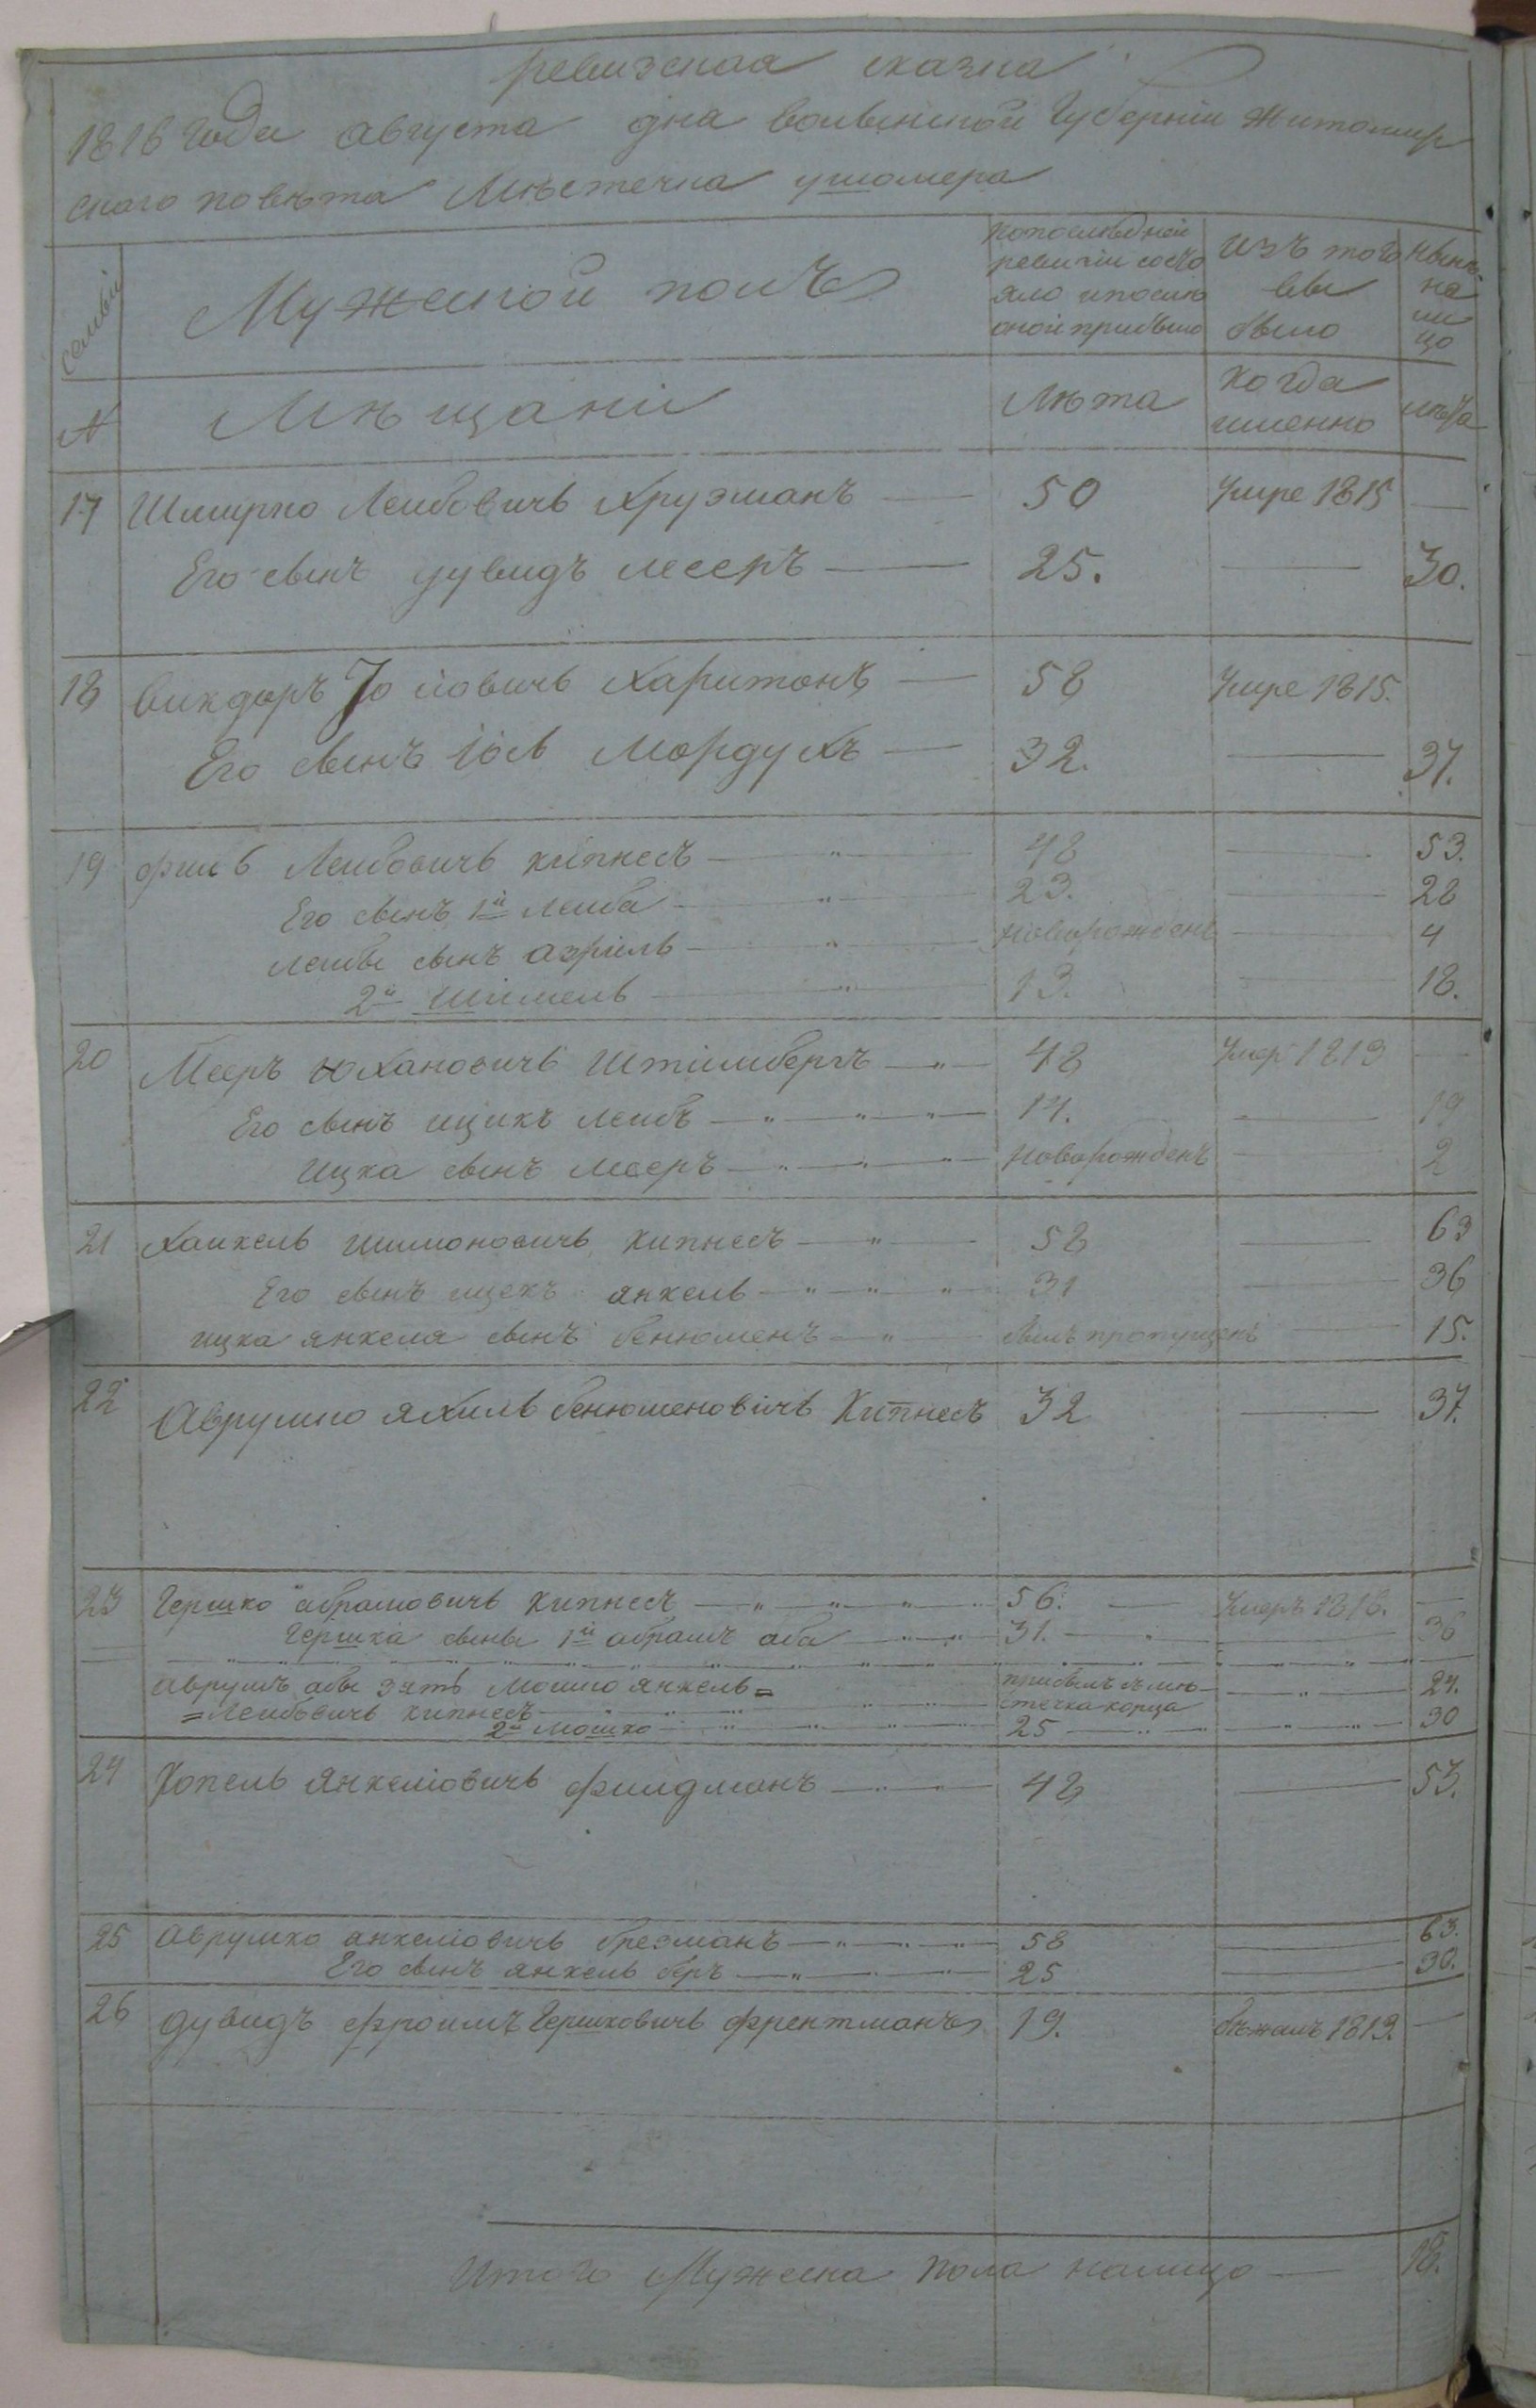 ревизская сказка
1816 года августа дня волынской Губерніи Житомир
скаго повѣта Мѣстечка ушомера
семьи
Мужеской полъ
попослѣдней ревизіи состояло и после оной прибыло
изъ того вы было
нынѣ на ли цо
N
Мѣщани
Лѣта
когда именно
лѣта
17 Шмирко Леибовичь Крузманъ — 50 Умре 1815 —
Его сынъ дувидъ мееръ — 25. — 30.
18 Викдоръ Іо іовичь Харитонъ — 58 Умре 1815.
Его сынъ іось Мордухъ — 32. — 37.
19 фишь Леибовичь кипнесъ — " — 48 — 53.
Его сынъ 1й Леиба — " — 23. — 28
Леибы сынъ азріль — " — новорожденъ — 4
2й Шімель — " — 13. — 18.
20 Мееръ Юхановичь Штімбергъ — " — 48 Умер 1813 —
Его сынъ ицикъ Леибъ — " — " — " — 14. — 19
Ицка сынъ Мееръ — " — " — " — новорожденъ — 2
21 Хаикель Шимоновичь Кипнесъ — " — 58 — 63
Его сынъ ицекъ янкель — " — " — " — 31 — 36
ицка янкеля сынъ бенюменъ — " — былъ пропущенъ — 15.
22 Аврумко яхиль бенюменовічь Кипнесъ 32 — 37.
23 Гершко абрамовичь Кипнесъ — " — " — " — 56. — Умеръ 1816. —
Гершка сыны 1й абрамъ аба — " — 31. — " — 36
аврумъ абы зять Мошко янкель = прибылъ съ мѣ — " — 24.
= Леибовичь кипнесъ — " — стечка корца
2й Мошко — " — " — " — 25 — " — " — " — 30
24 Копель Янкеліовичь фиидманъ — " — 48 — 53.
25 Аврумко анкеліовичь брезманъ — " — " — " — 58 — 63.
Его сынъ янкель беръ — " — " — 25 — 30.
26 дувидъ фроимъ Гершковичь френтманъ 19. бѣжалъ 1813. —
Итого Мужеска пола налицо — 18.